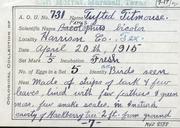 A. O. U. No. 731 Name Tufted Titmouse.
Baeolophus bicolor
Locality Harrison Co. Tex.
Date April 20th, 1915
Set Mark 5 Incubation Fresh
No. of Eggs in Set 5 Identity Birds seen
Nest Made of strips of bark & few
leaves, lined with few feathers & green
moss, few snake scales, in natural
cavity of Hackberry tree 2 ft. from ground
-7-